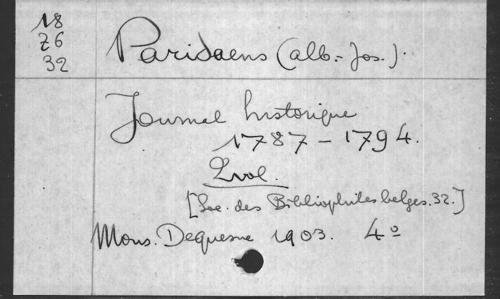 18
76
32
Paridaens (Alb.-Jos.).
Journal historique
1787-1794.
2 vol.
[Soc. des Bibliophiles belges. 32.]
Mons. Dequesne 1903. 4°